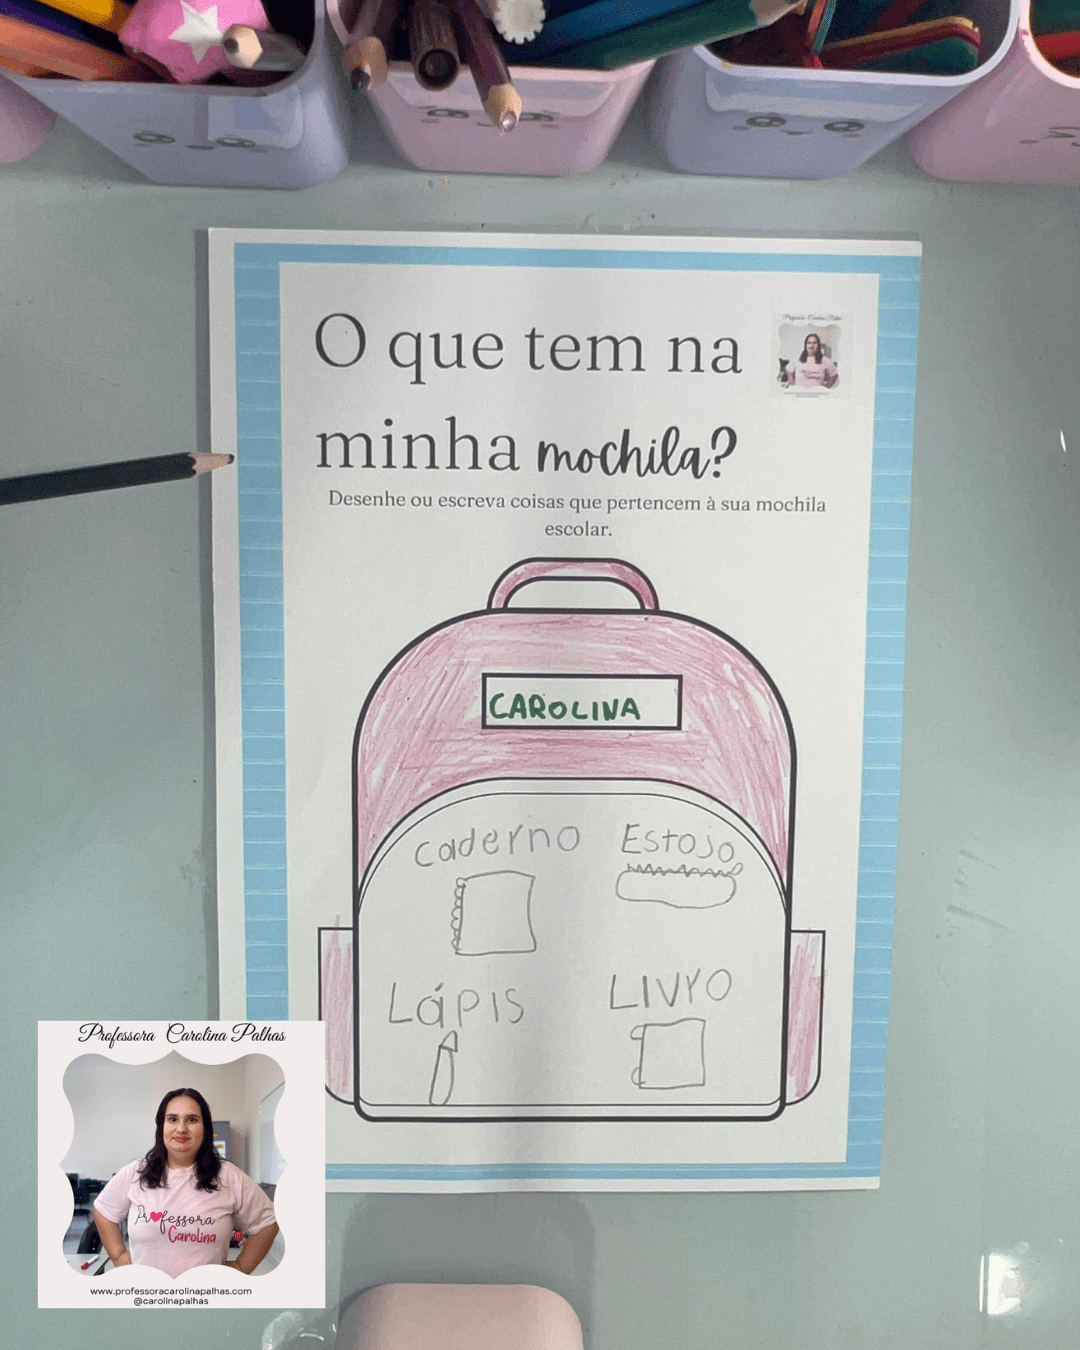 O que tem na
minha mochila?
Desenhe ou escreva coisas que pertencem à sua mochila
escolar.
CAROLINA
caderno Estojo
Lápis LIVrO
Professora Carolina Palhas
Professora
Carolina
www.professoracarolinapalhas.com
@carolinapalhas